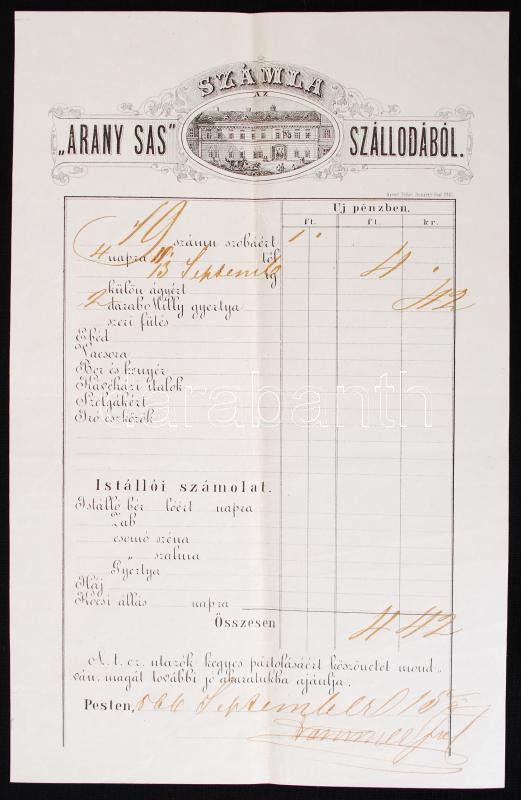 SZÁMLA
AZ
„ARANY SAS” SZÁLLODÁBÓL.
Uj pénzben.
ft. ft. kr.
19 számu szobáért 1 .
4 napra 11 től
13 September ig 4 .
külön ágyért
2 darab Milly gyertya 42
szeri fütés
Ebéd
Vacsora
Bor és kenyér
Kávéházi italok
Szolgákért
Iró eszközök
Istállói számolat.
Istálló bér lóért napra
Zab
csomó széna
„ szalma
Gyertya
Háj
Kocsi állás napra
Összesen 4 42
A. t. cz. utazók kegyes pártolásáért köszönetet mond-
ván, magát további jó akaratukba ajánlja.
Pesten, 866 September 15
darabanth